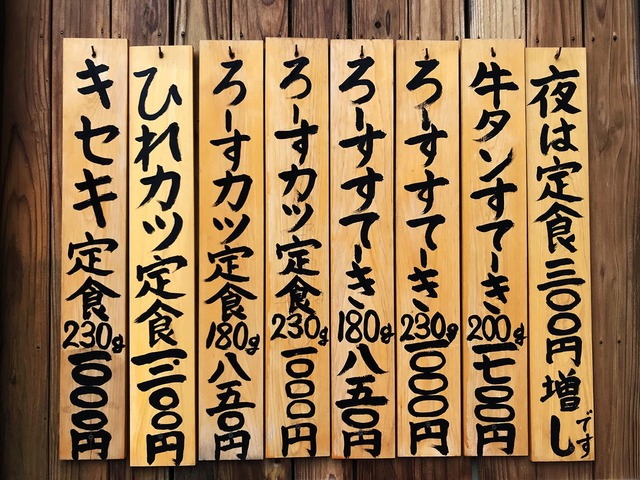 夜は定食三〇〇円増しです
牛タンすてーき200g一七〇〇円
ろーすすてーき230g一〇〇〇円
ろーすすてーき180g八五〇円
ろーすカツ定食230g一〇〇〇円
ろーすカツ定食180g八五〇円
ひれカツ定食一三〇〇円
キセキ定食230g一〇〇〇円